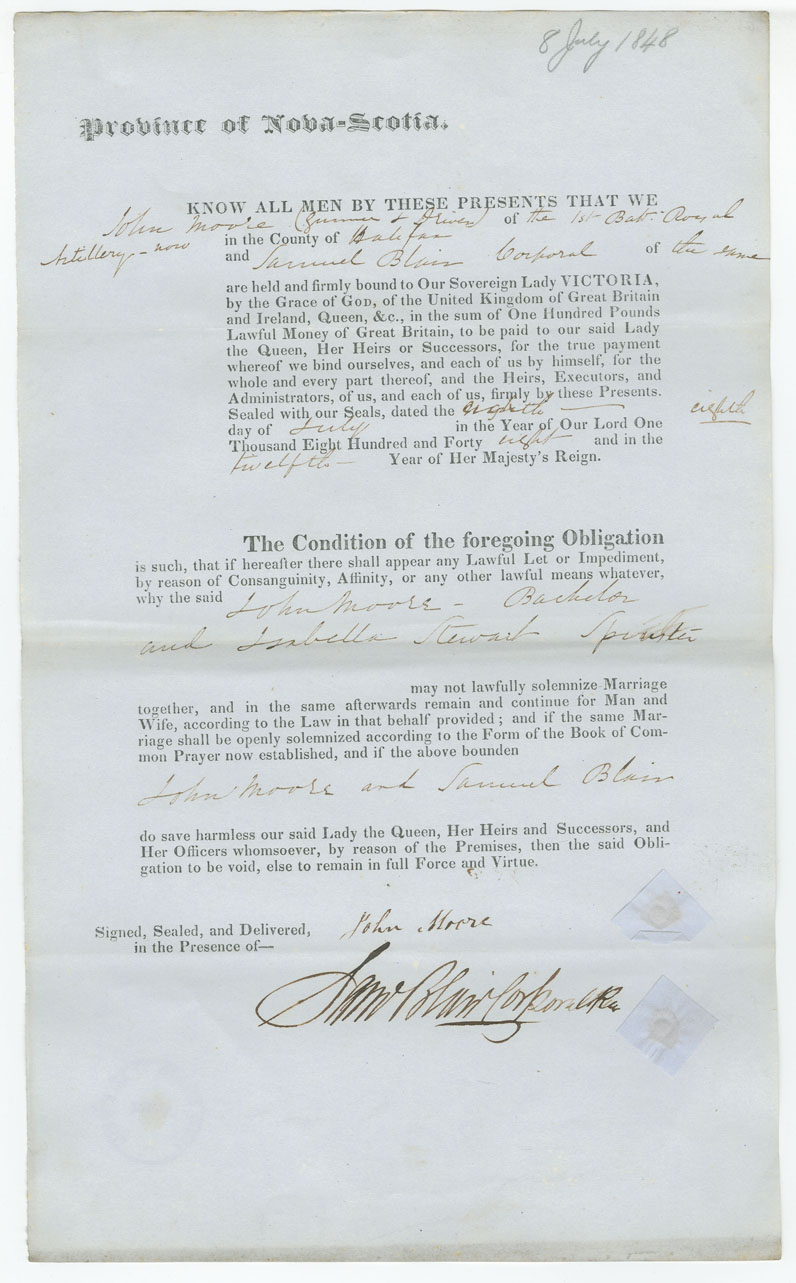 8 July 1848
Province of Nova-Scotia.
KNOW ALL MEN BY THESE PRESENTS THAT WE
John Moore (Gunner & Driver) of the 1st Bat. Royal
Artillery - now in the County of Halifax
and Samuel Blair Corporal of the same
are held and firmly bound to Our Sovereign Lady VICTORIA,
by the Grace of GOD, of the United Kingdom of Great Britain
and Ireland, Queen, &c., in the sum of One Hundred Pounds
Lawful Money of Great Britain, to be paid to our said Lady
the Queen, Her Heirs or Successors, for the true payment
whereof we bind ourselves, and each of us by himself, for the
whole and every part thereof, and the Heirs, Executors, and
Administrators, of us, and each of us, firmly by these Presents.
Sealed with our Seals, dated the eighth — eighth
day of July in the Year of Our Lord One
Thousand Eight Hundred and Forty eight and in the
twelfth — Year of Her Majesty's Reign.
The Condition of the foregoing Obligation
is such, that if hereafter there shall appear any Lawful Let or Impediment,
by reason of Consanguinity, Affinity, or any other lawful means whatever,
why the said John Moore - Bachelor
and Isabella Stewart Spinster
may not lawfully solemnize Marriage
together, and in the same afterwards remain and continue for Man and
Wife, according to the Law in that behalf provided; and if the same Mar-
riage shall be openly solemnized according to the Form of the Book of Com-
mon Prayer now established, and if the above bounden
John Moore and Samuel Blair
do save harmless our said Lady the Queen, Her Heirs and Successors, and
Her Officers whomsoever, by reason of the Premises, then the said Obli-
gation to be void, else to remain in full Force and Virtue.
Signed, Sealed, and Delivered, John Moore
in the Presence of—
Saml Blair Corporal RA